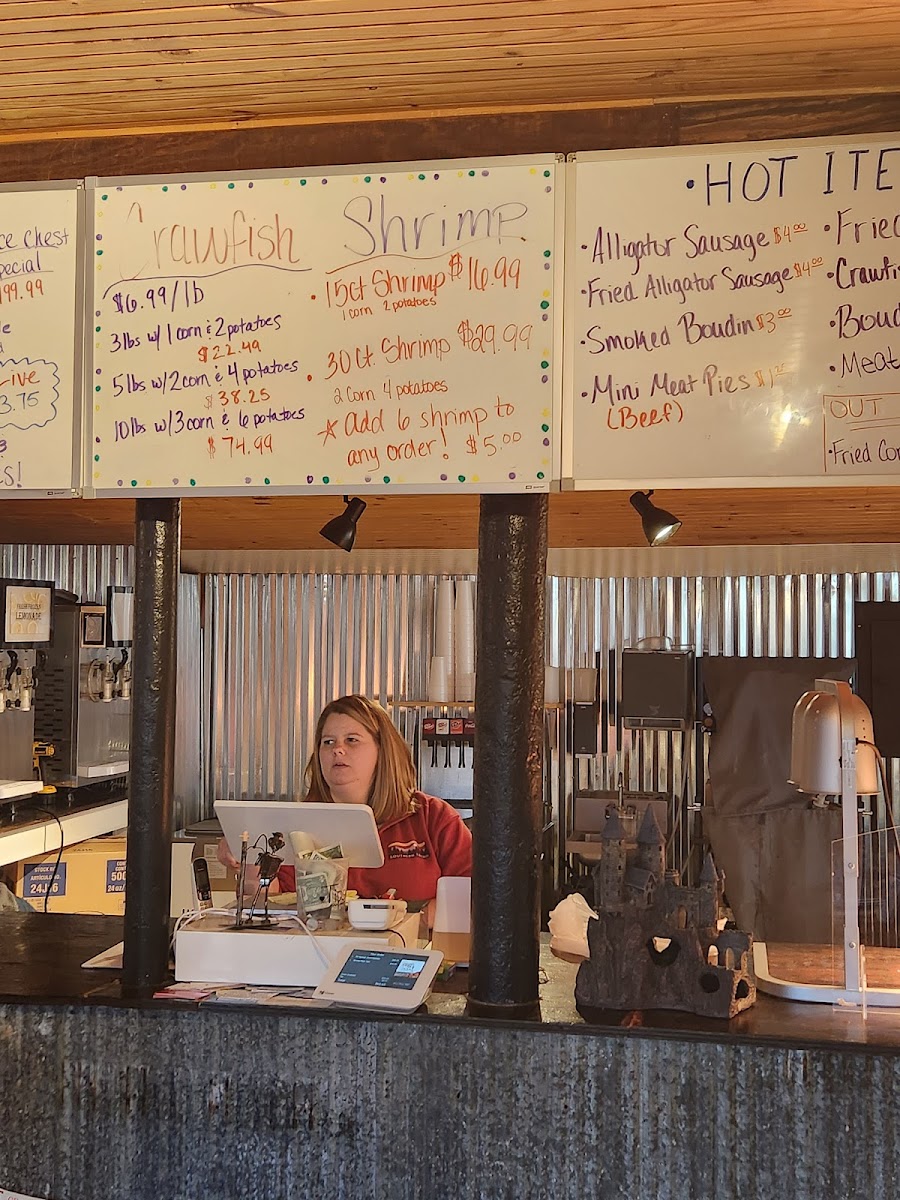 ce Chest
pecial
99.99
Live
3.75
Crawfish
$6.99/lb
3lbs w/ 1 corn & 2 potatoes
$22.49
5lbs w/ 2 corn & 4 potatoes
$38.25
10lbs w/ 3 corn & 6 potatoes
$74.99
Shrimp
• 15ct Shrimp $16.99
1 corn 2 potatoes
• 30ct Shrimp $29.99
2 corn 4 potatoes
* add 6 shrimp to
any order! $5.00
• HOT ITE
• Alligator Sausage $4.00
• Fried Alligator Sausage $4.00
• Smoked Boudin $3.00
• Mini Meat Pies
(Beef)
• Fried
• Crawfi
• Boud
• Meat
OUT
• Fried Cor
LEMONADE
24J16
500